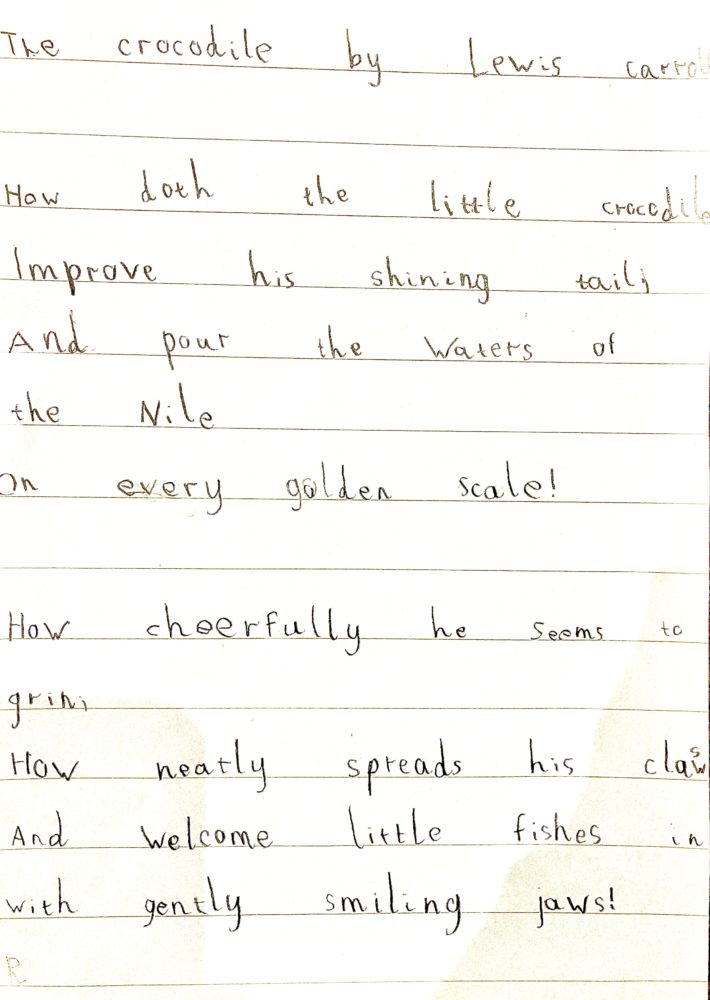 The crocodile by Lewis carroll
How doth the little crocodile
Improve his shining tail,
And pour the Waters of
the Nile
On every golden scale!
How cheerfully he seems to
grin,
How neatly spreads his claws
And welcome little fishes in
with gently smiling jaws!
R